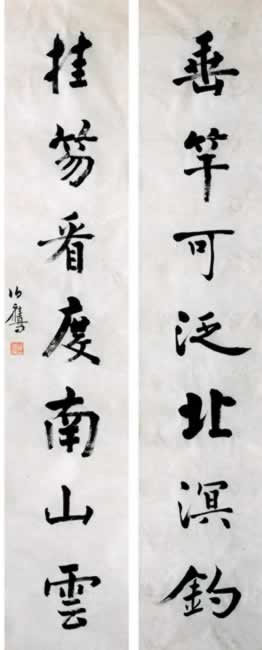 垂竿可泛北溟釣
挂笏看度南山雲
伯鷹